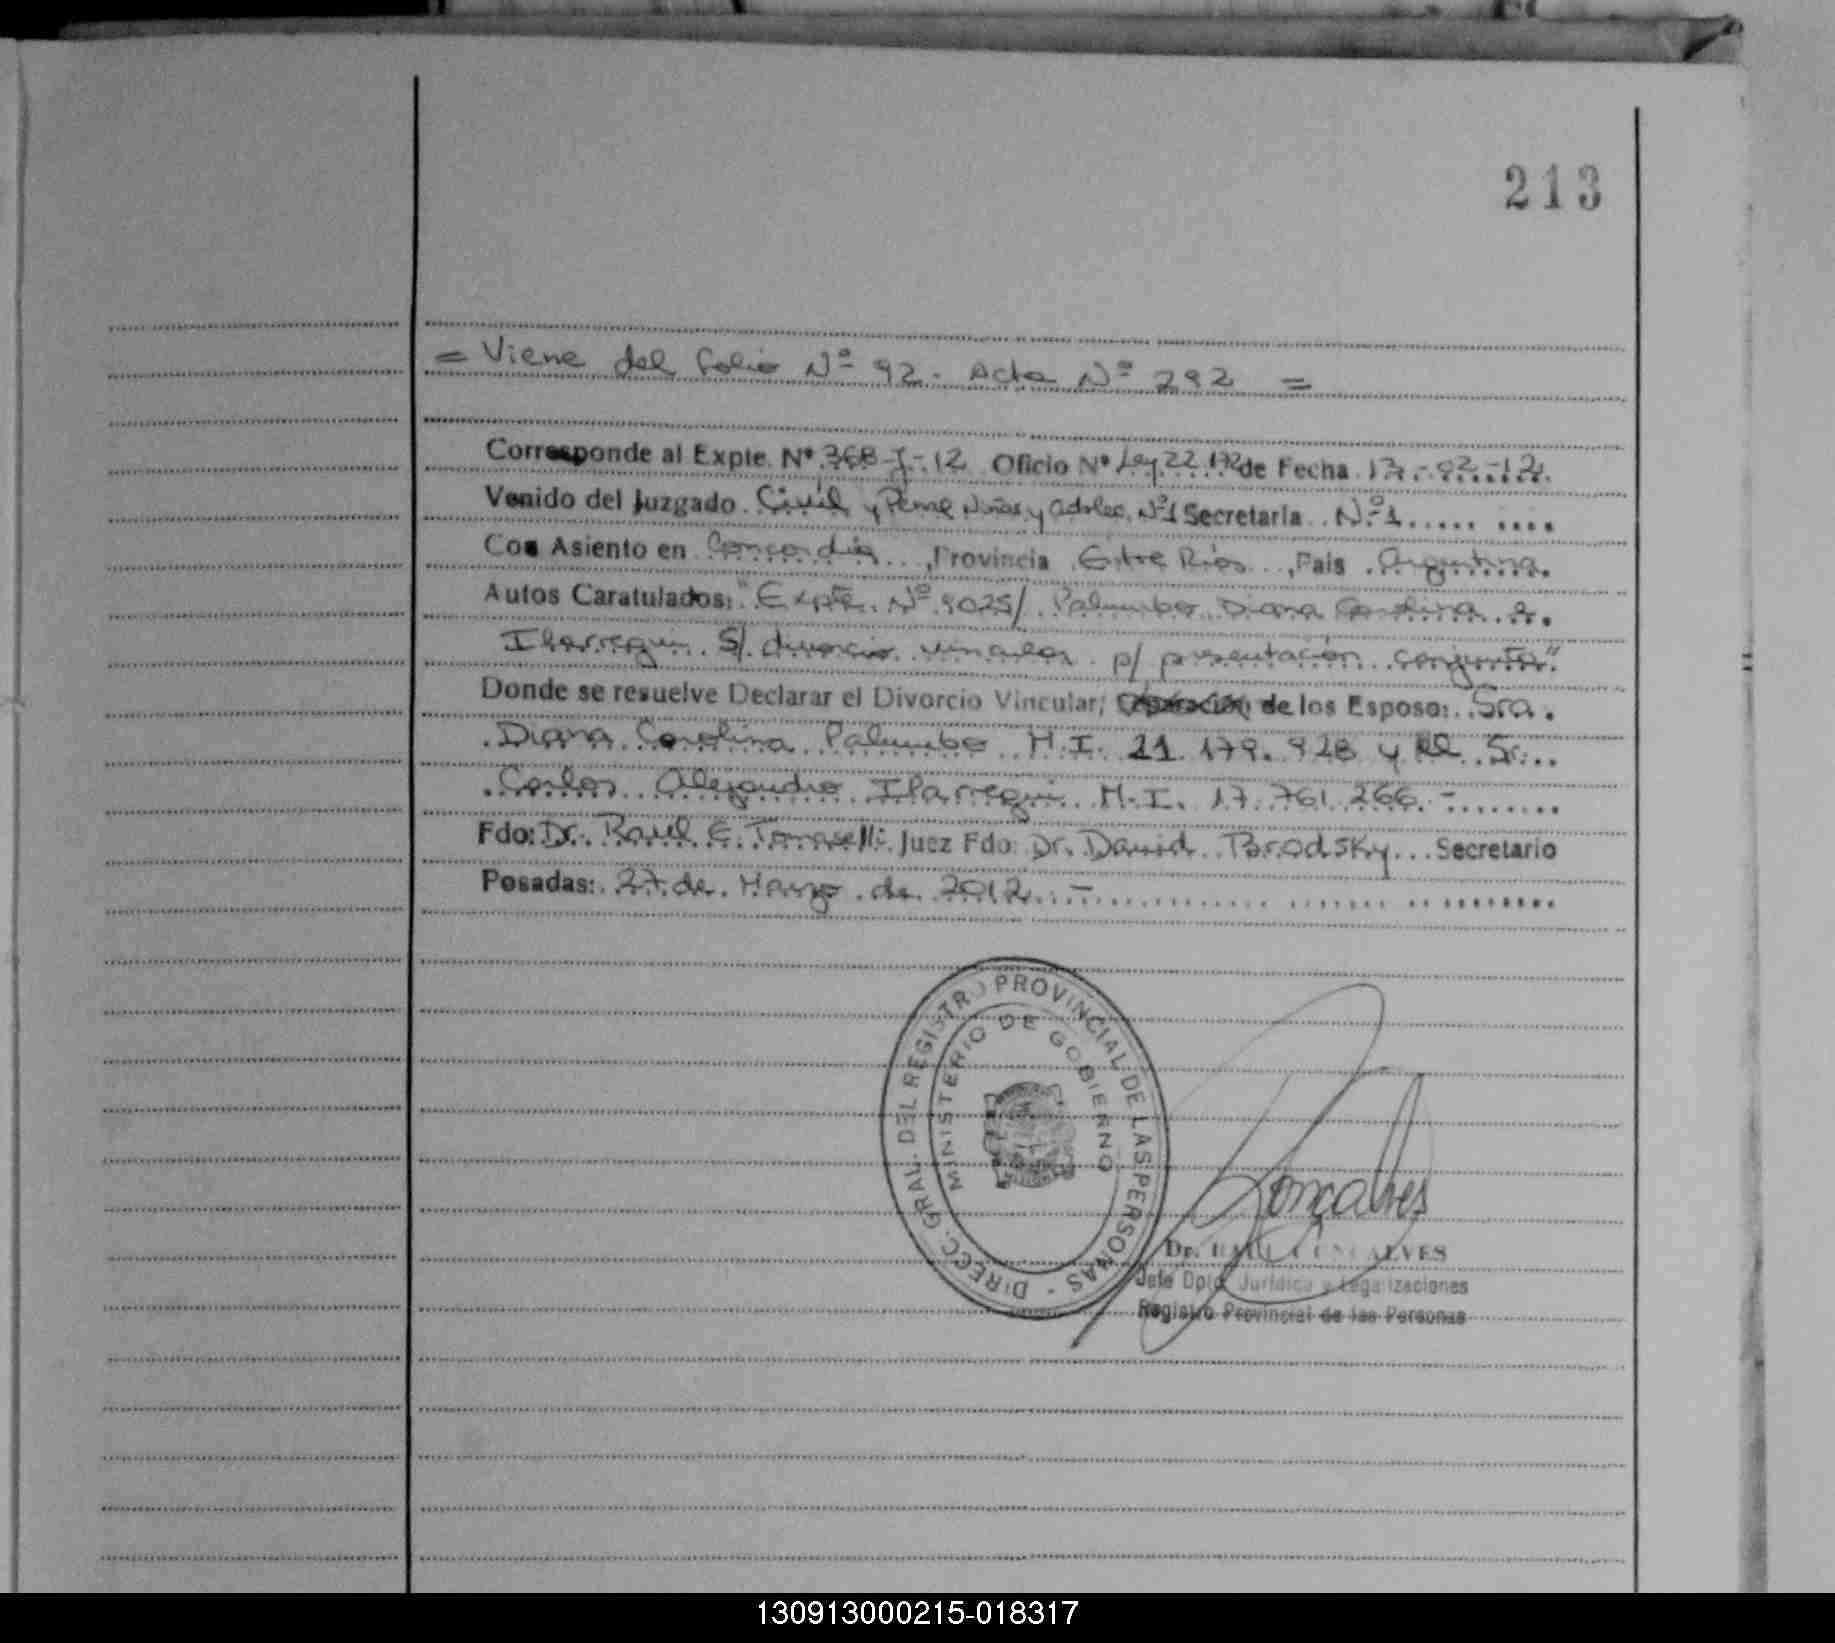 213
= Viene del folio Nº 92. Acta Nº 292 =
Corresponde al Expte. Nº 368-J-12 Oficio Nº Ley 22.172 de Fecha 13-02-12.
Venido del Juzgado Civil y Penal Niños y adolec. Nº1 Secretaria Nº 1
Con Asiento en Concordia, Provincia Entre Rios, Pais Argentina.
Autos Caratulados: "Expte. Nº 9025/ Palumbo Diana Carolina e
Ilarregui S/ divorcio vincular p/ presentación conjunta"
Donde se resuelve Declarar el Divorcio Vincular, de los Esposo: Sra.
Diana Carolina Palumbo M.I. 21.179.928 y el Sr.
Carlos Alejandro Ilarregui M.I. 17.761.266.-
Fdo: Dr. Raul E. Tomaselli Juez Fdo: Dr. David Brodsky Secretario
Posadas: 27 de Marzo de 2012.-
DIRECC. GRAL. DEL REGISTRO PROVINCIAL DE LAS PERSONAS -
MINISTERIO DE GOBIERNO
Goncalves
Dr. RAUL GONCALVES
Jefe Dpto. Jurídico y Legalizaciones
Registro Provincial de las Personas
130913000215-018317